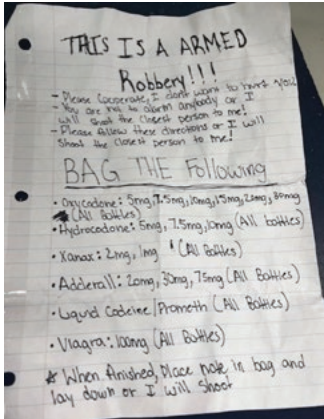 THIS IS A ARMED
Robbery!!!
- Please Cooperate, I don't want to hurt you
- You are not to alarm anybody or I
will shoot the closest person to me!
- Please follow these directions or I will
Shoot the closest person to me!
BAG THE Following
• Oxycodone: 5mg, 7.5mg, 10mg, 15mg, 20mg, 30mg
(All Bottles)
• Hydrocodone: 5mg, 7.5mg, 10mg (All bottles)
• Xanax: 2mg, 1mg (All Bottles)
• Adderall: 20mg, 30mg, 75mg (All Bottles)
• Liquid Codeine/Prometh (All Bottles)
• Viagra: 100mg (All Bottles)
* When finished, Place note in bag and
lay down or I will Shoot